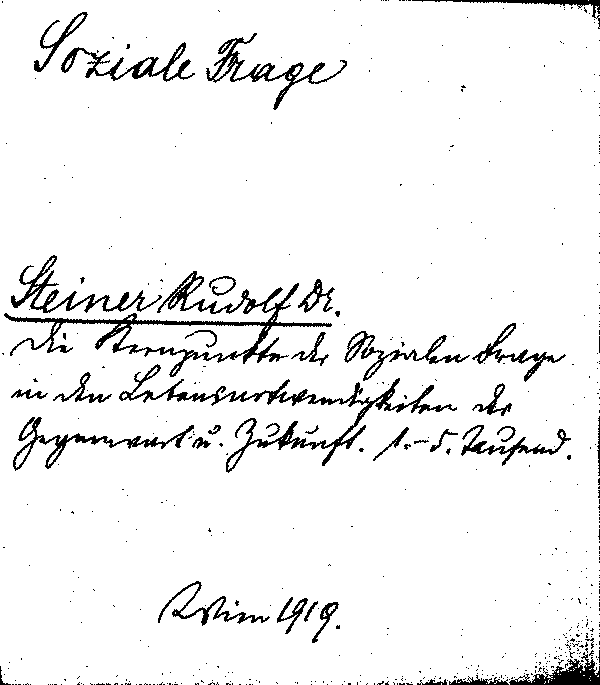 Soziale Frage
Steiner Rudolf Dr.
Die Kernpunkte der Sozialen Frage
in den Lebensnotwendigkeiten der
Gegenwart u. Zukunft. 1.-5. Tausend.
Wien 1919.